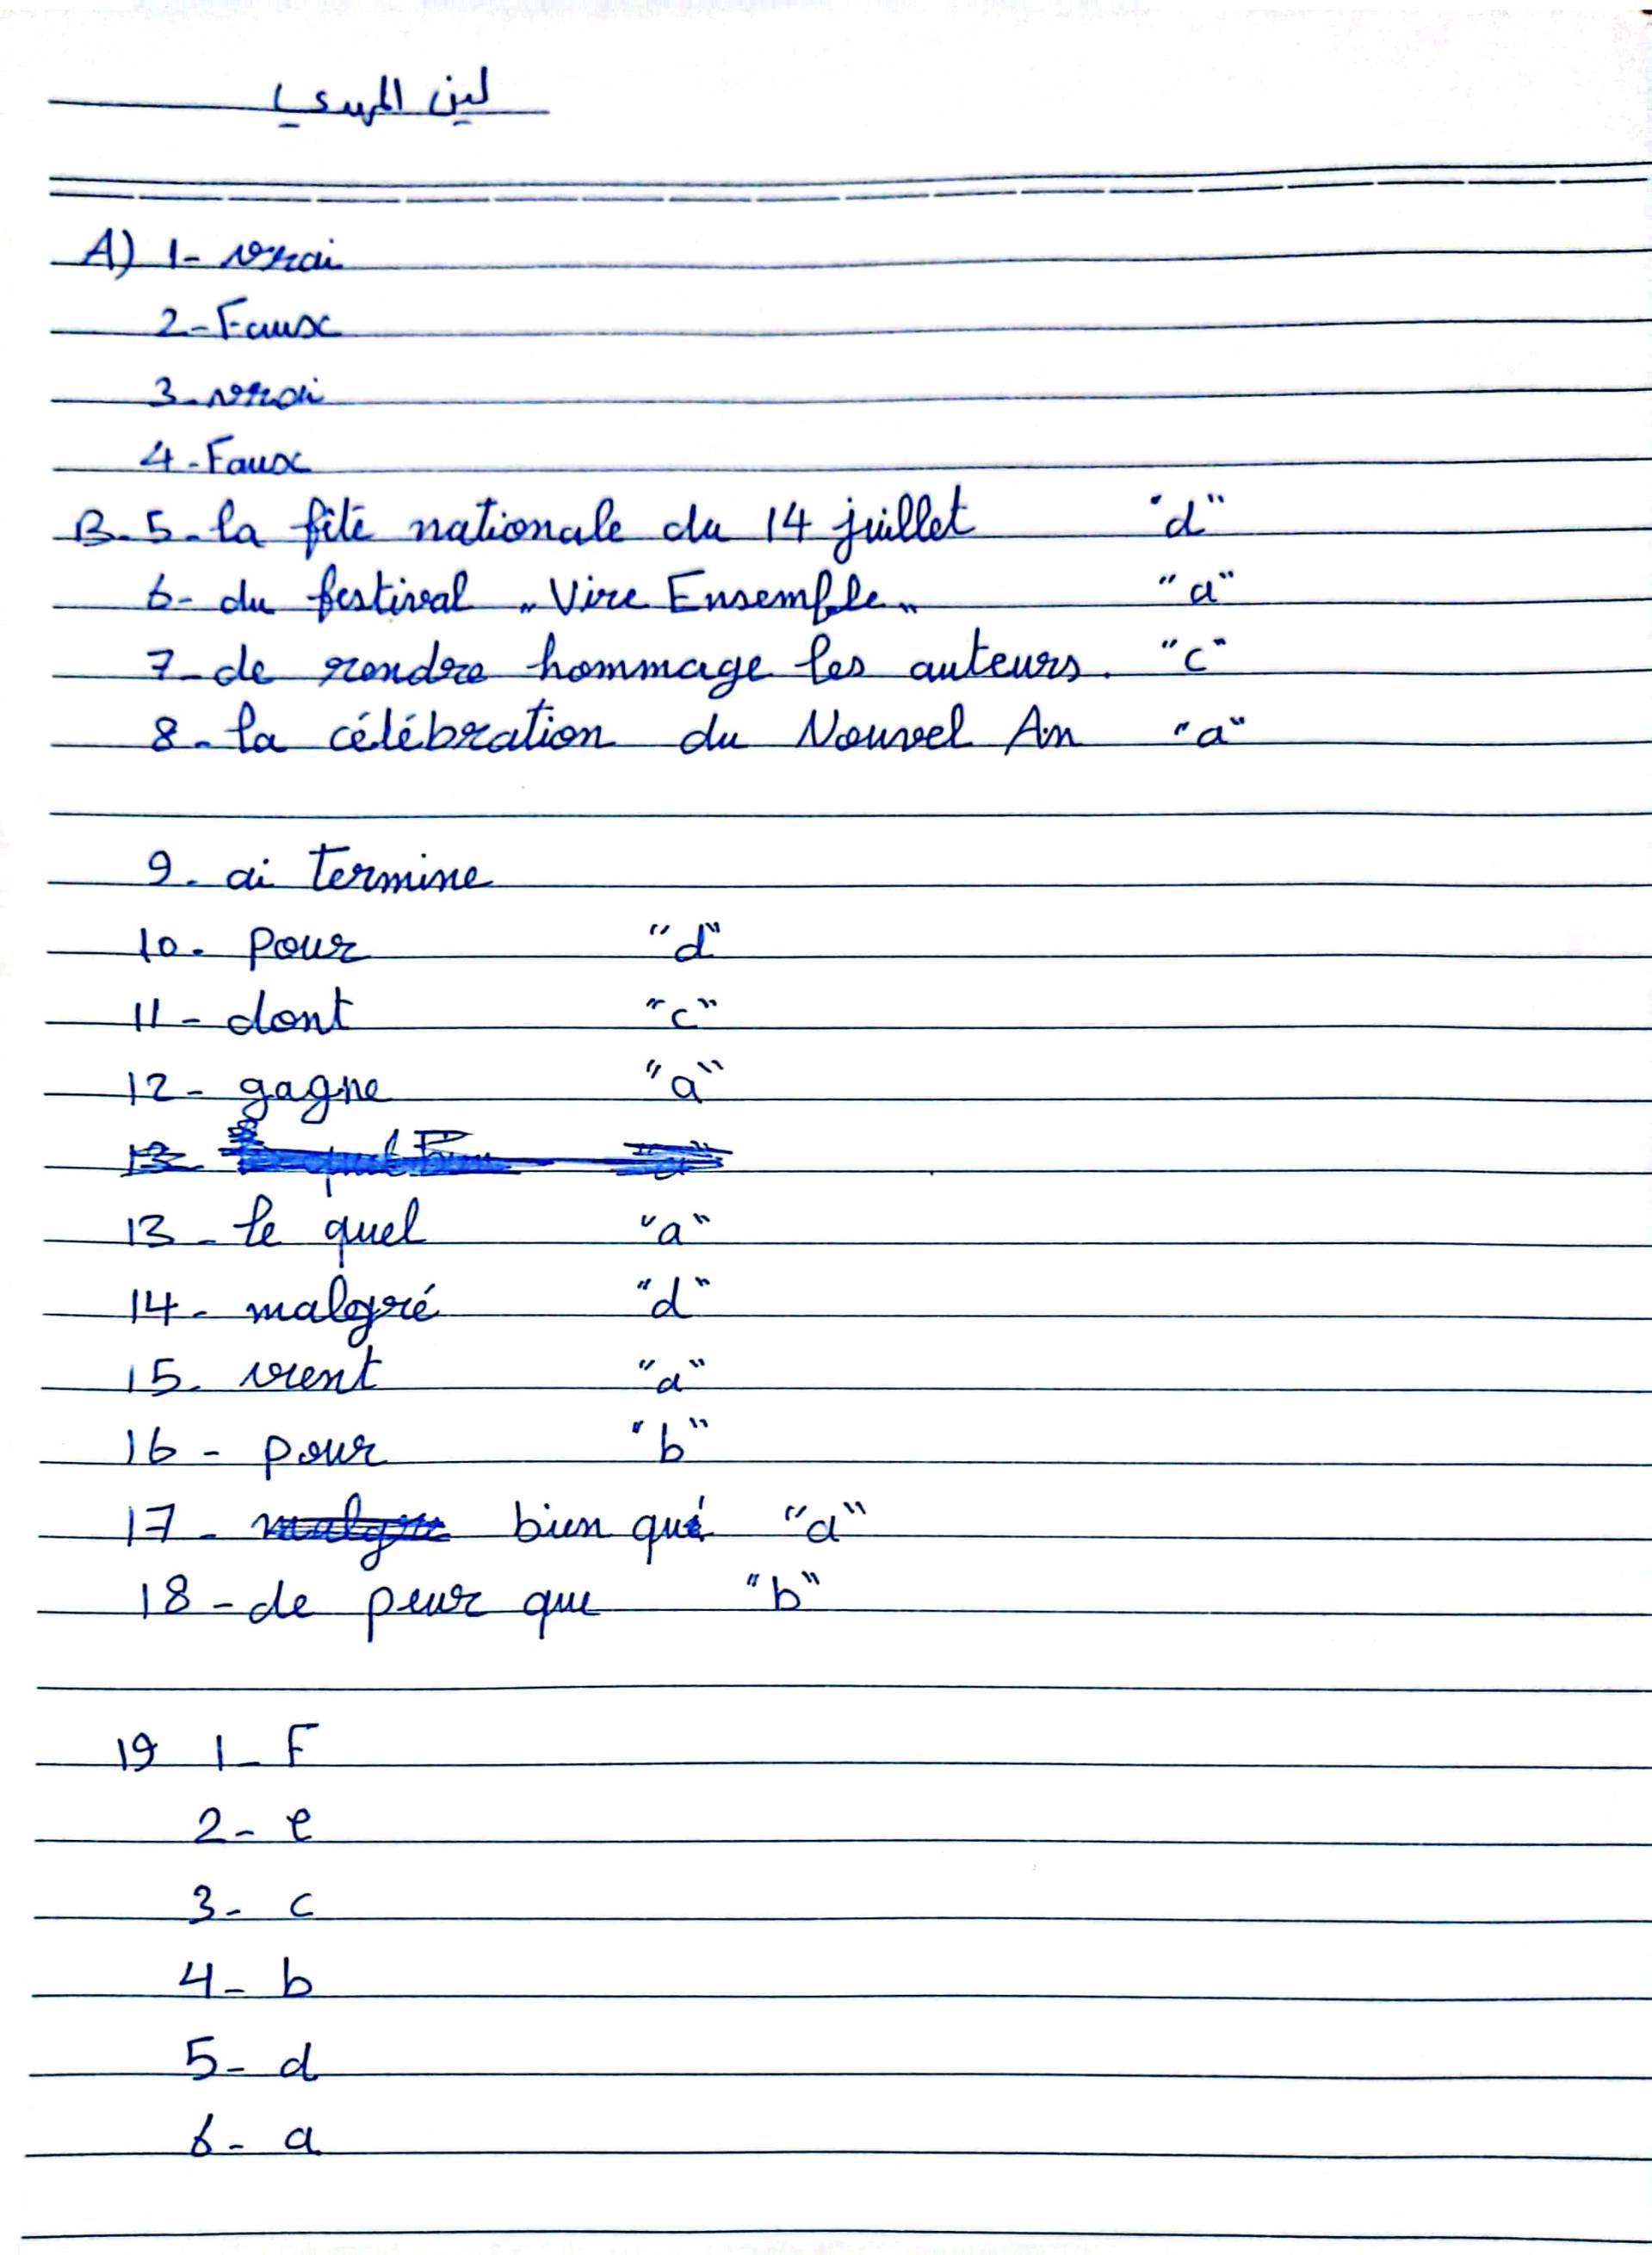 لين المهدي
A) 1- vrai
2- Faux
3- vrai
4- Faux
B- 5- la fête nationale du 14 juillet "d"
6- du festival „Vire Ensemble„ "a"
7- de rendre hommage les auteurs. "c"
8- la célébration du Nouvel An "a"
9- ai termine
10- pour "d"
11- dont "c"
12- gagne "a"
13- le quel "a"
14- malgré "d"
15- vient "a"
16- pour "b"
17- bien que "a"
18- de peur que "b"
19 1- F
2- e
3- c
4- b
5- d
6- a